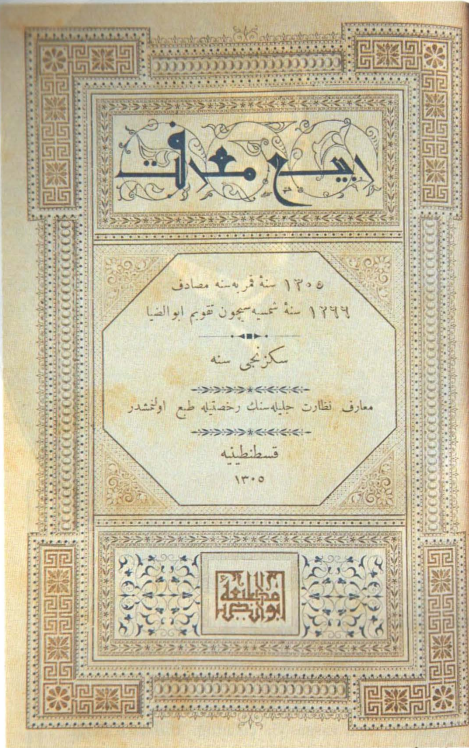 ربيع معرفت
١٣٠٥ سنهٔ قمريه سنه مصادف
١٢٦٦ سنهٔ شمسيه سيچون تقويم ابوالضيا
سكزنجى سنه
معارف نظارت جليله سنك رخصتيله طبع اولنمشدر
قسطنطينيه
١٣٠٥
مطبعهٔ
ابوالضيا